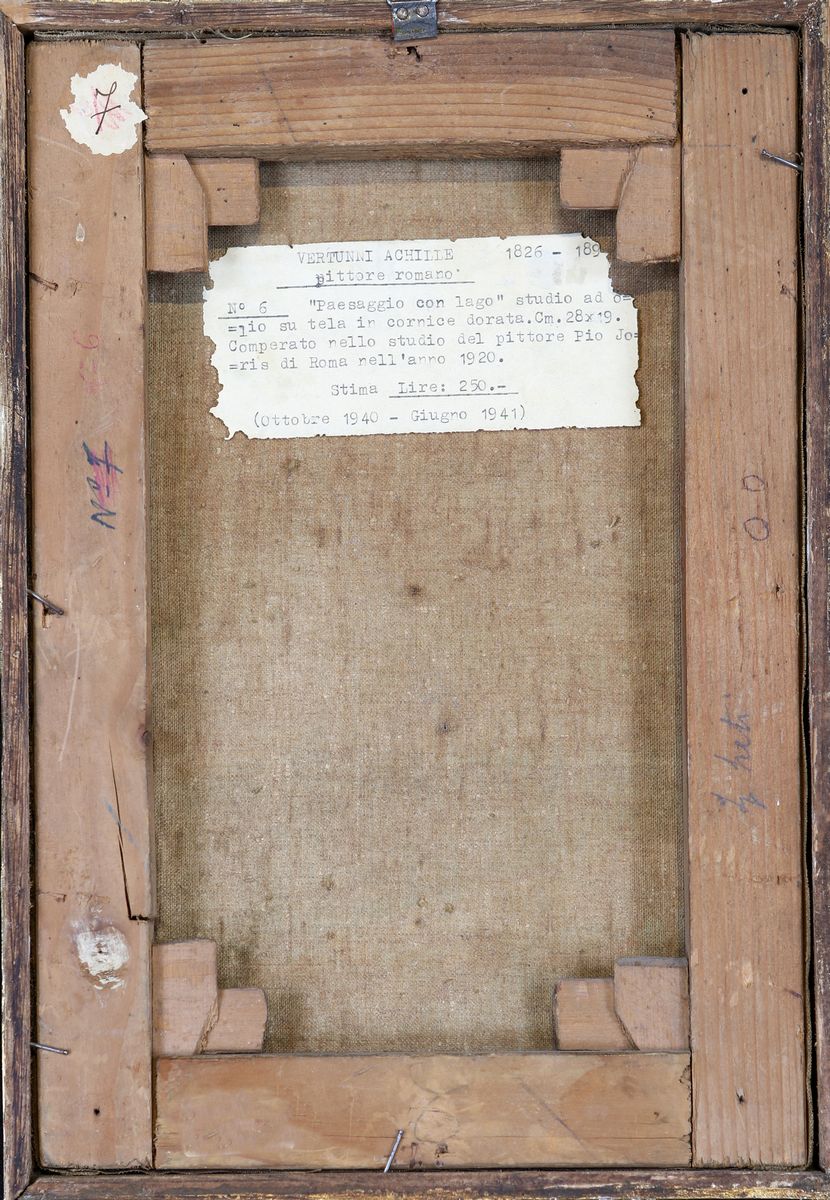 7
VERTUNNI ACHILLE 1826 - 189
pittore romano
N° 6 "Paesaggio con lago" studio ad o=
=lio su tela in cornice dorata.Cm.28x19.
Comperato nello studio del pittore Pio Jo=
=ris di Roma nell'anno 1920.
Stima Lire: 250.-
(Ottobre 1940 - Giugno 1941)
N° 7
00